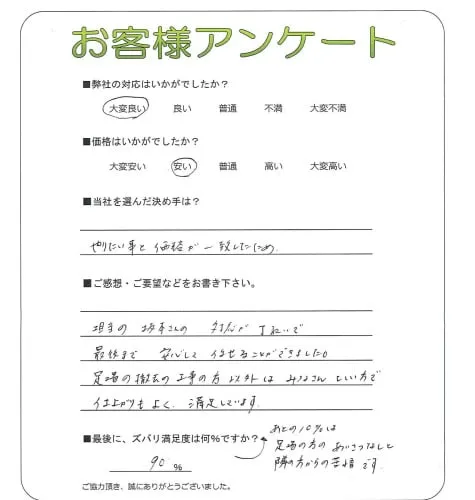 お客様アンケート
■弊社の対応はいかがでしたか?
大変良い 良い 普通 不満 大変不満
■価格はいかがでしたか?
大変安い 安い 普通 高い 大変高い
■当社を選んだ決め手は?
やりたい事と価格が一致したため。
■ご感想・ご要望などをお書き下さい。
担当の坂本さんの対応が ていねいで
最後まで 安心して任せることができました。
足場の撤去の工事の方以外は みなさん いい方で
仕上がりもよく、満足しています。
■最後に、ズバリ満足度は何%ですか?
90 %
あとの10%は
足場の方の あいさつなしと
隣の方からの苦情です。
ご協力頂き、誠にありがとうございました。